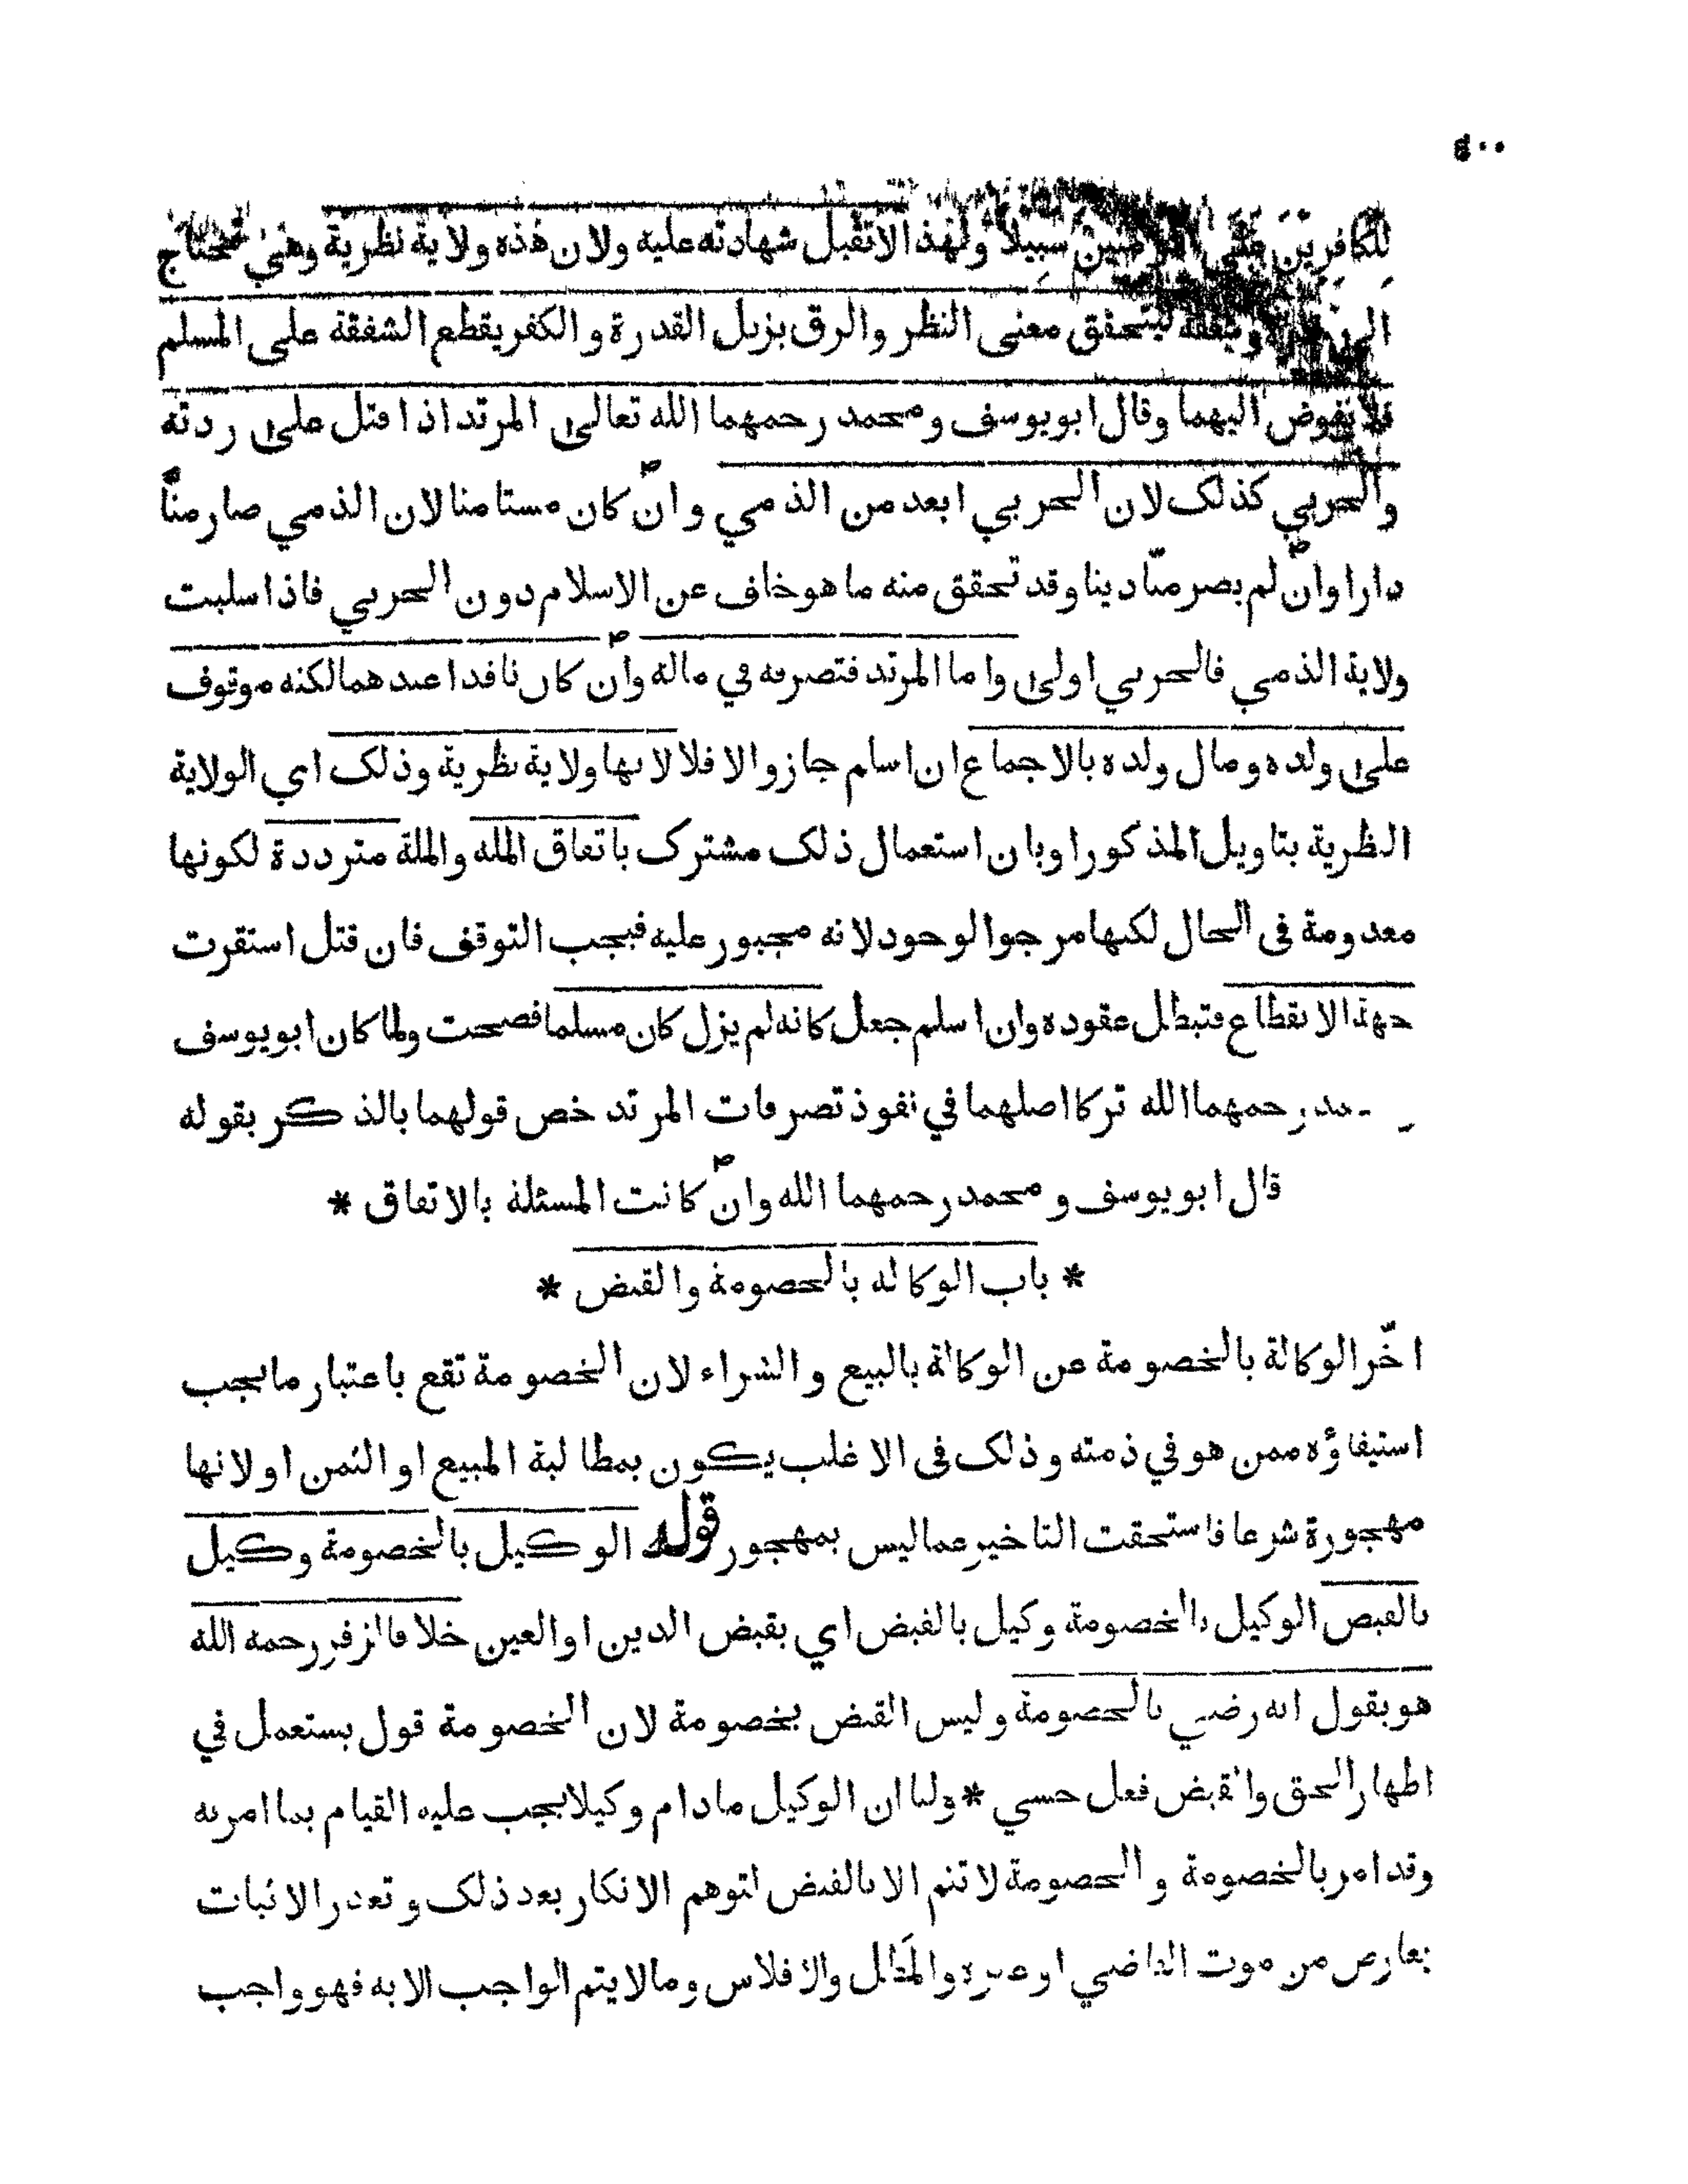 ٤٠٠
للكافرين على المؤمنين سبيلا ولهذا لاتقبل شهادته عليه ولان هذه ولاية نظرية وهي تحتاج
الى وشفقة ليتحقق معنى النظر والرق يزيل القدرة والكفر يقطع الشفقة على المسلم
فلا تفوض اليهما وقال ابويوسف ومحمد رحمهما الله تعالىٰ المرتد اذا قتل علىٰ ردته
والحربي كذلك لان الحربي ابعد من الذمي وانْ كان مستامنا لان الذمي صار منّاً
دارا وانْ لم يصر منّا دينا وقد تحقق منه ما هو خلف عن الاسلام دون الحربي فاذا سلبت
ولاية الذمي فالحربي اولىٰ واما المرتد فتصرفه في ماله وان كان نافذا عندهما لكنه موقوف
علىٰ ولده ومال ولده بالاجماع ان اسلم جاز والا فلا لانها ولاية نظرية وذلك اي الولاية
النظرية بتاويل المذكور او بان استعمال ذلك مشترك باتفاق الملة والملة مترددة لكونها
معدومة فى الحال لكنها مرجوالوجود لانه مجبور عليه فيجب التوقف فان قتل استقرت
جهة الانقطاع فتبطل عقوده وان اسلم جعل كانه لم يزل كان مسلما فصحت ولما كان ابويوسف
ومحمد رحمهما الله تركا اصلهما في نفوذ تصرفات المرتد خص قولهما بالذكر بقوله
قال ابويوسف ومحمد رحمهما الله وانْ كانت المسئلة بالاتفاق *
* باب الوكالة بالخصومة والقبض *
اخّر الوكالة بالخصومة عن الوكالة بالبيع والشراء لان الخصومة تقع باعتبار مايجب
استيفاؤه ممن هو في ذمته وذلك فى الاغلب يكون بمطالبة المبيع او الثمن او لانها
مهجورة شرعا فاستحقت التاخير عماليس بمهجور قوله الوكيل بالخصومة وكيل
بالقبض الوكيل بالخصومة وكيل بالقبض اي بقبض الدين او العين خلافا لزفر رحمه الله
هو يقول انه رضي بالخصومة وليس القبض بخصومة لان الخصومة قول يستعمل في
اظهار الحق والقبض فعل حسي * ولنا ان الوكيل مادام وكيلا يجب عليه القيام بما امر به
وقد امر بالخصومة والخصومة لاتتم الا بالقبض لتوهم الانكار بعد ذلك وتعذر الاثبات
بعارض من موت القاضي او غيره والمَطل والافلاس ومالايتم الواجب الا به فهو واجب